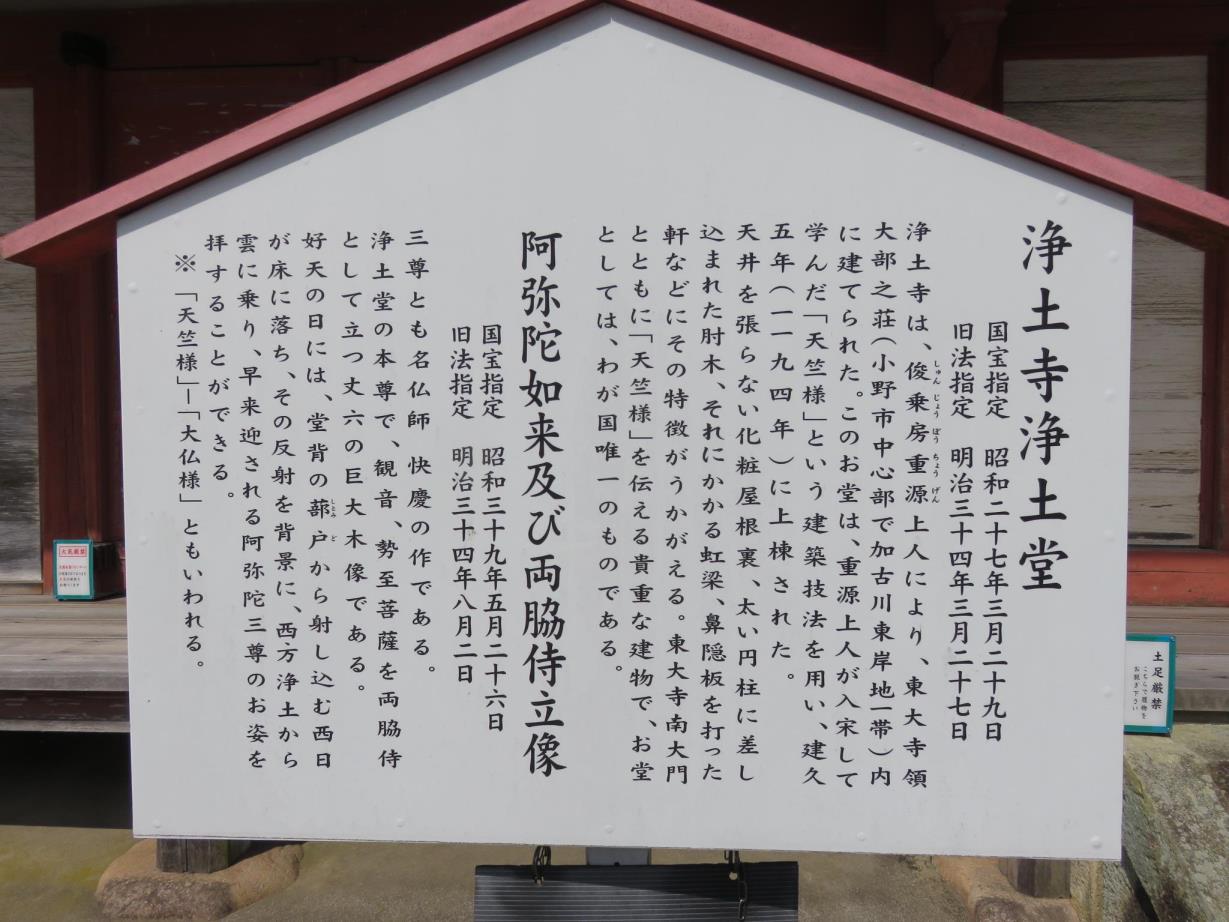 浄土寺浄土堂
国宝指定　昭和二十七年三月二十九日
旧法指定　明治三十四年三月二十七日
浄土寺は、俊乗房重源上人により、東大寺領
しゅんじょうぼうちょうげん
大部之荘(小野市中心部で加古川東岸地一帯)内
に建てられた。このお堂は、重源上人が入宋して
学んだ「天竺様」という建築技法を用い、建久
五年(一一九四年)に上棟された。
天井を張らない化粧屋根裏、太い円柱に差し
込まれた肘木、それにかかる虹梁、鼻隠板を打った
軒などにその特徴がうかがえる。東大寺南大門
とともに「天竺様」を伝える貴重な建物で、お堂
としては、わが国唯一のものである。
阿弥陀如来及び両脇侍立像
国宝指定　昭和三十九年五月二十六日
旧法指定　明治三十四年八月二日
三尊とも名仏師　快慶の作である。
浄土堂の本尊で、観音、勢至菩薩を両脇侍
として立つ丈六の巨大木像である。
好天の日には、堂背の蔀戸から射し込む西日
しとみど
が床に落ち、その反射を背景に、西方浄土から
雲に乗り、早来迎される阿弥陀三尊のお姿を
拝することができる。
※「天竺様」―「大仏様」ともいわれる。
土足厳禁
こちらで履物を
お脱ぎ下さい
火気厳禁